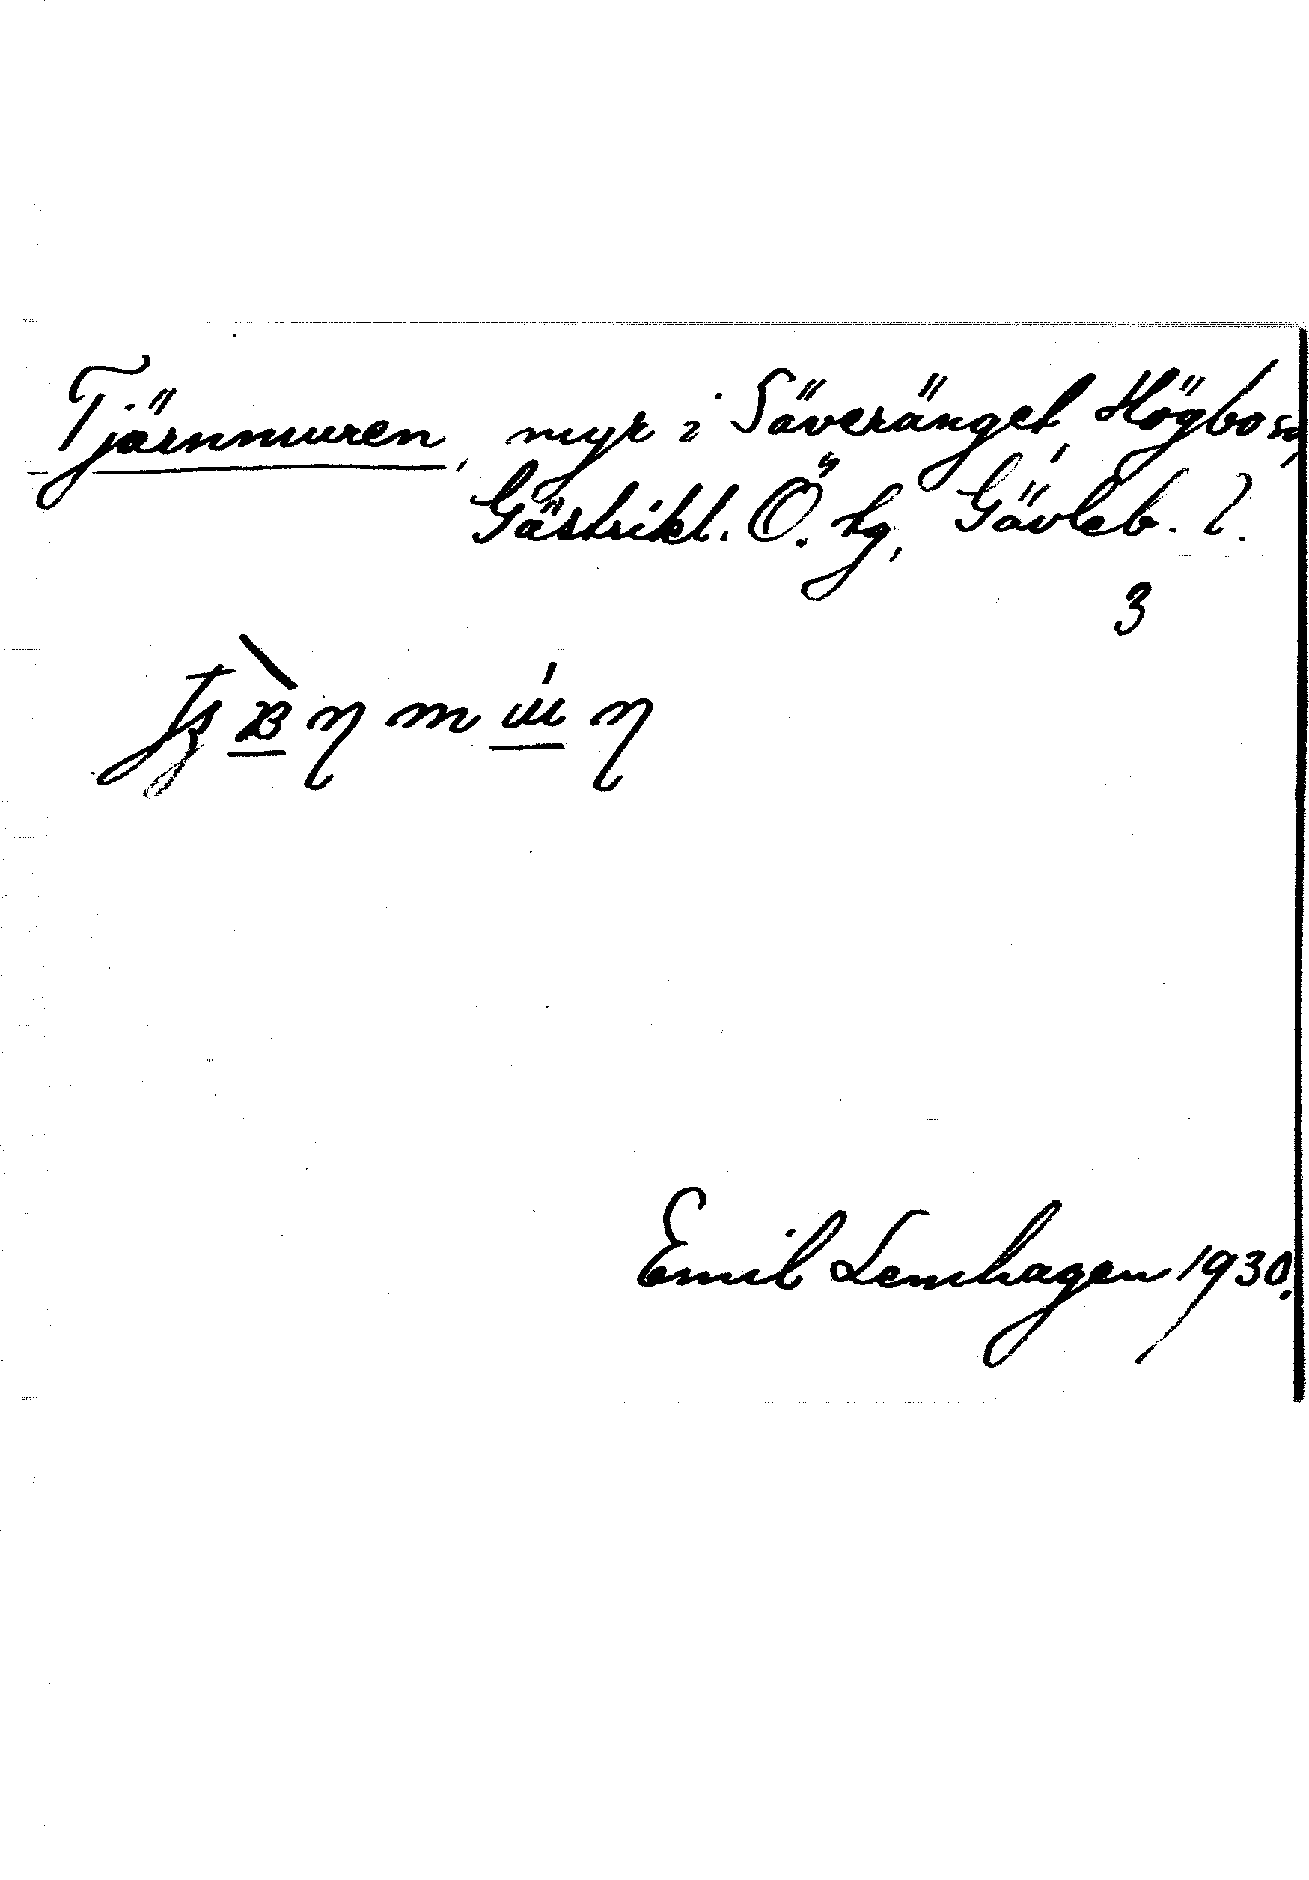 Tjärnmuren, myr i Säveränget, Högbo sn,
Gästrikl. Ö. tg, Gävleb. l.
3
Emil Lemhagen 1930.